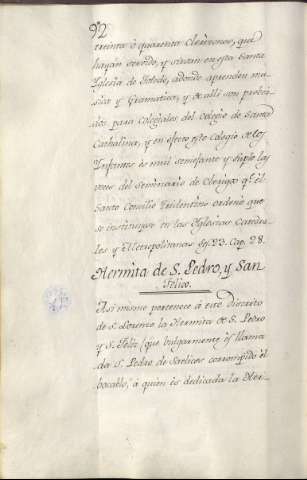 92
treinta ó quarenta Clerizones, que
hayan servido, y sirvan en esta Santa
Iglesia de Toledo, adonde aprenden mu-
sica y Gramatica, y de alli son probei-
dos para Colegiales del Colegio de Santa
Cathalina, y en efecto este Colegio de los
Infantes es mui semejante y suple las
veces del seminario de Clerigos qe. el
Santo Concilio Tridentino ordenó que
se instituyan en las Iglesias Catedra-
les y Metropolitanas Ses. 23. Cap. 28.
Hermita de S. Pedro, y San
Felice.
Asi mismo pertenece á este Distrito
de S. Lorenzo la Hermita de S. Pedro
y S. Feliz (que bulgarmente es llama-
da S. Pedro de Saelices corrompido el
bocablo, á quien es dedicada la Her-